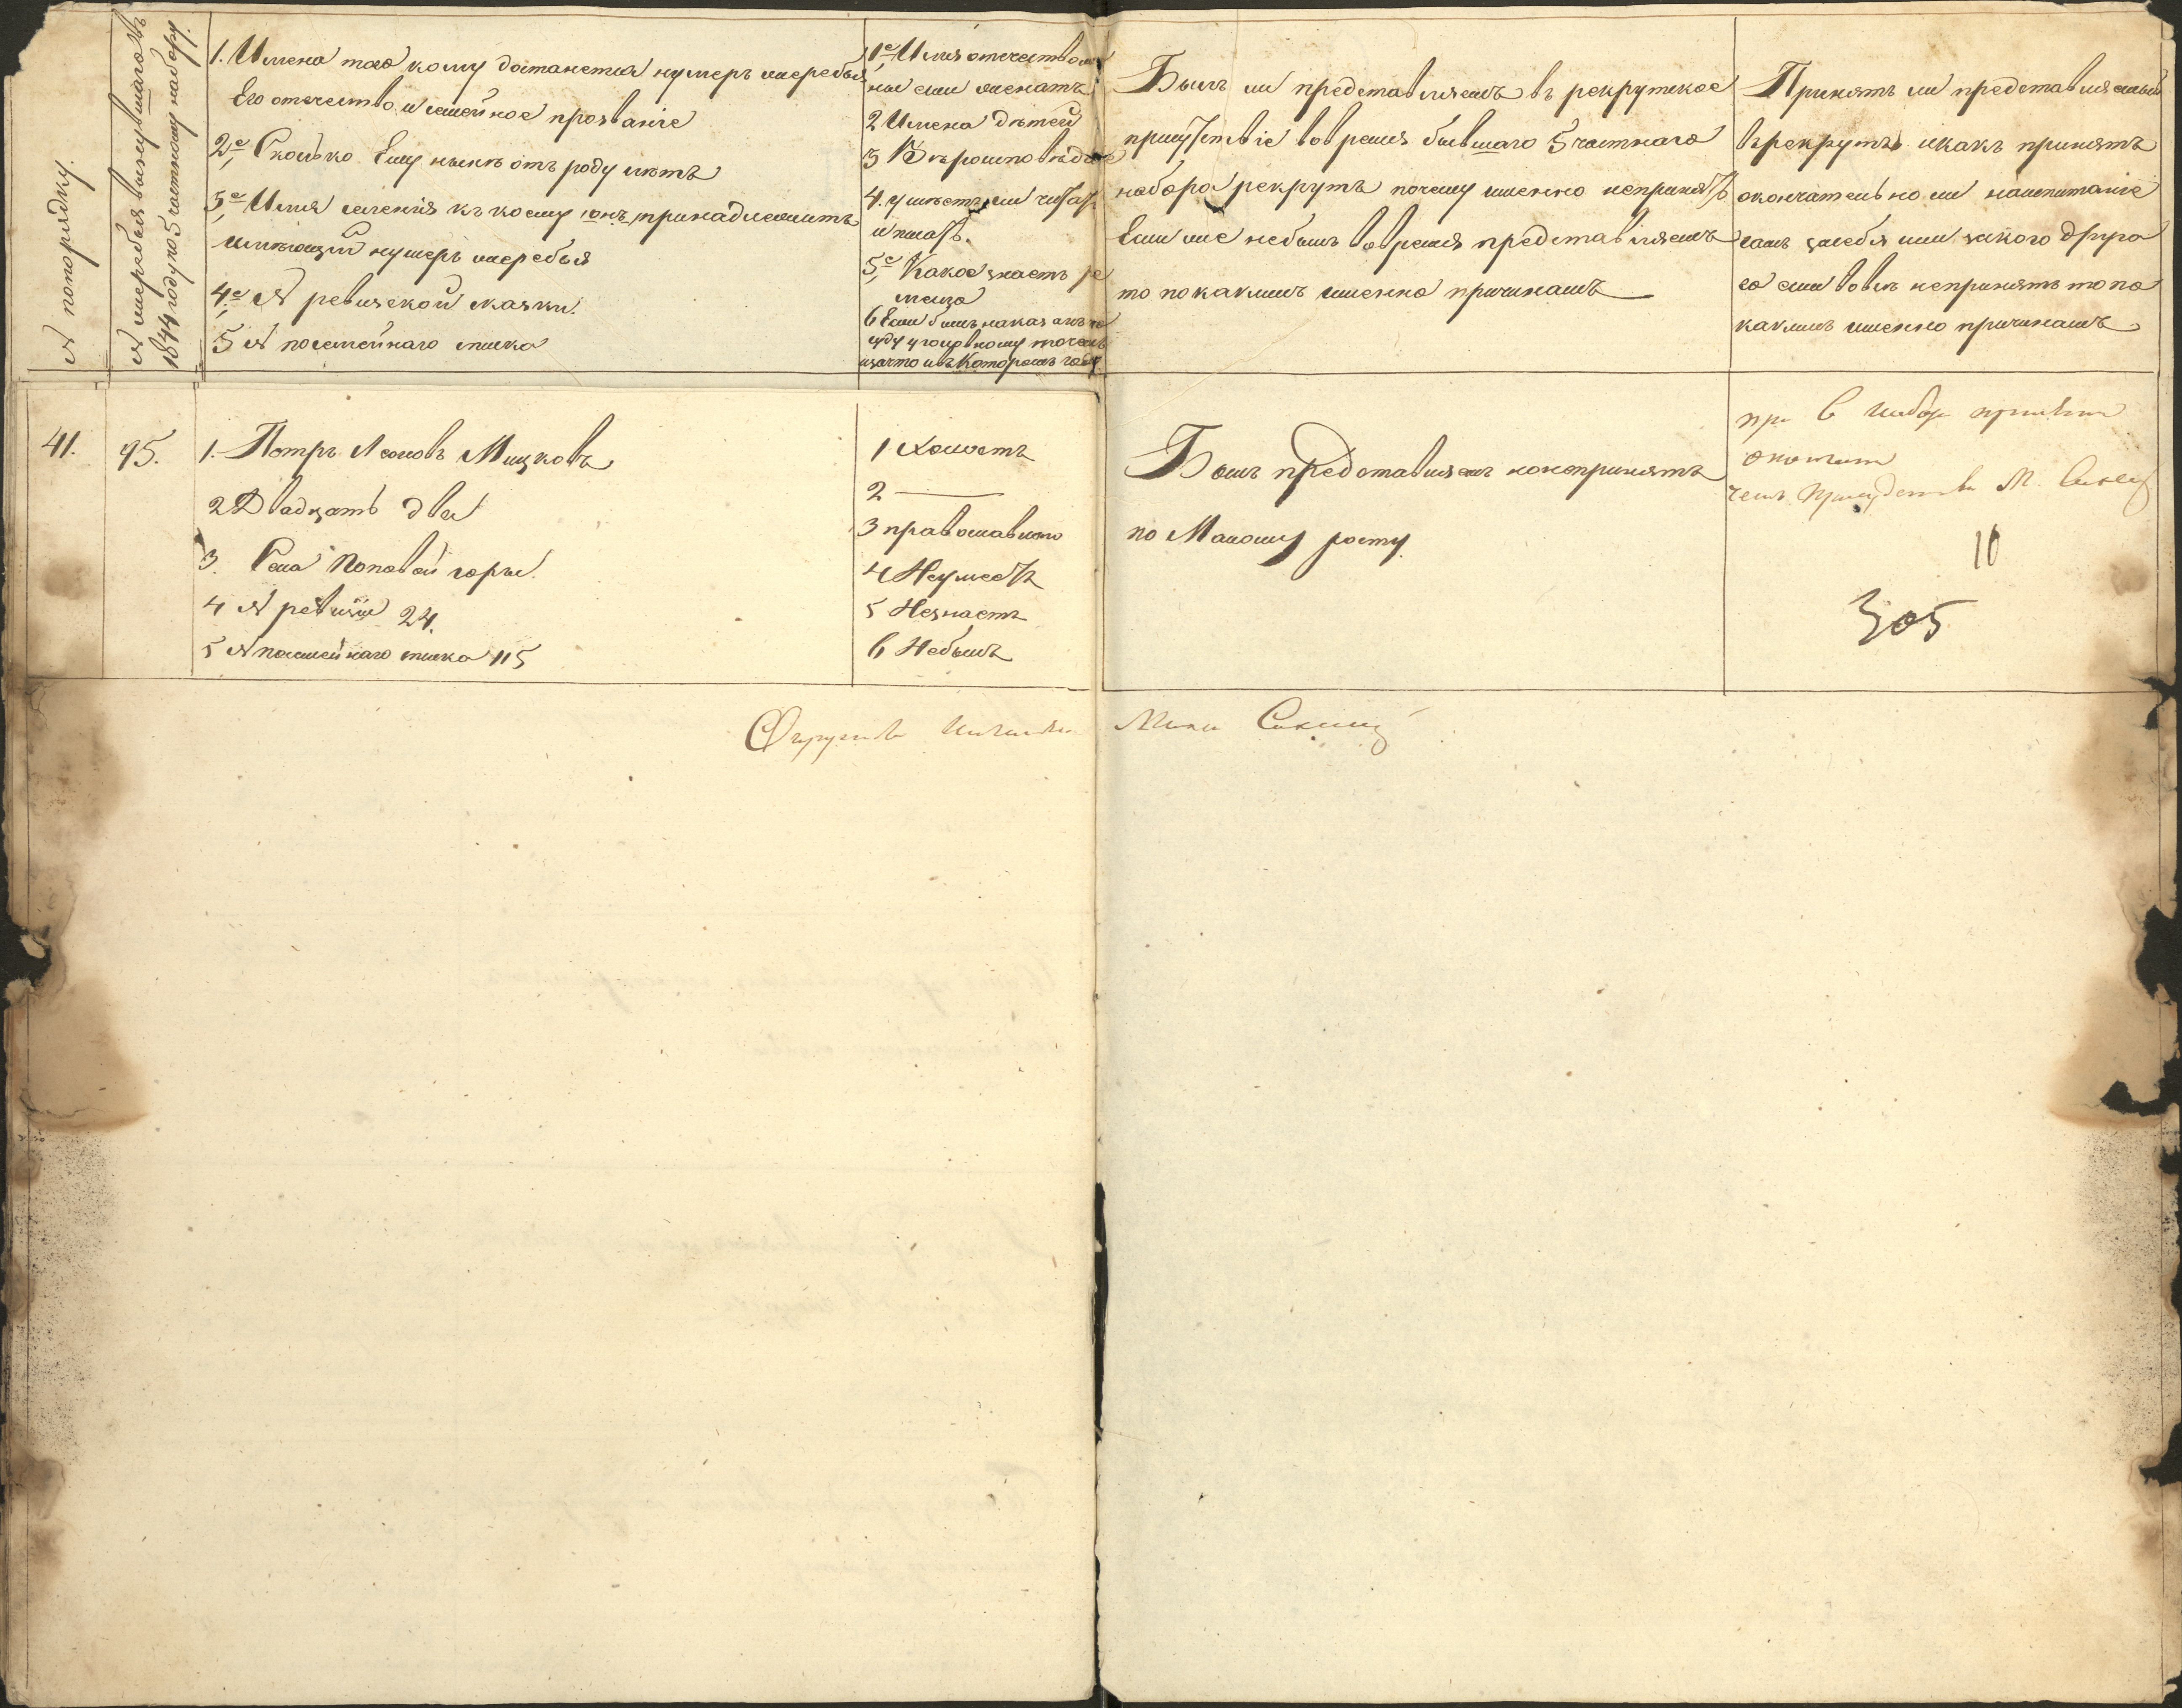 № попорядку.
№ жеребья вынувшагосъ
1844 году по 5 частному набору.
1. Имена того кому достанется нумеръ жеребья
Его отечество и семейное прозваніе
2е Сколько Ему нынѣ отъ роду лѣтъ
3е Имя селенія къ коему онъ принадлежитъ
имѣющій нумеръ жеребья
4е № ревизской сказки.
5 № посемейнаго списка
1е Имя отечество
ны если женатъ
2 Имена дѣтей
3 Вѣроисповѣда
4. умѣетъ ли читать
и писать.
5е Какое знаетъ ре
месло
6 Если былъ наказанъ по
суду уголовному то чемъ
изачто ивъ Которомъ году
Былъ ли представляемъ въ рекрутское
присутствіе вовремя бывшаго 5 частнаго
набора рекрутъ почему именно непринятъ
Если же небылъ вовремя представляемъ
то по какимъ именно причинамъ
Принятъ ли представляемый
врекруты икакъ принятъ
окончательно ли напопитаніе
самъ засебя или закого друго
го если вовсѣ непринятъ то по
какимъ именно причинамъ
41.
95.
1. Петръ Леоновъ Мицковъ
2 Двадцать два
3. Села Поповой горы.
4 № ревизіи 24.
5 № посемейнаго списка 115
1 Холостъ
2
3 православнаго
4 Неумѣетъ
5 Незнаетъ
6 Небылъ
Былъ представляемъ нонепринятъ
по Малому росту.
при
М.
10
305